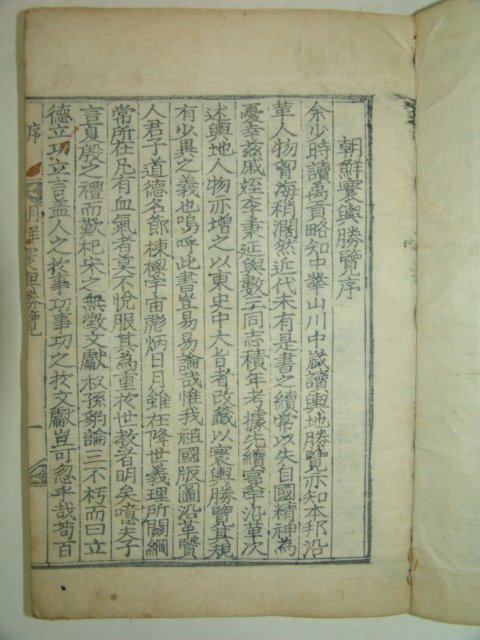 朝鮮寰輿勝覽序
余少時讀禹貢略知中華山川中歲讀輿地勝覽亦知本邦沿
革人物曾海稍濶然近代未有是書之續常以失自國精神為
憂幸玆戚姪李秉延與數三同志積年考據先續寰宇沿革次
述輿地人物亦增之以東史中大旨者改籤以寰輿勝覽其規
有少異之義也嗚呼此書豈易易論哉惟我祖國版圖沿革覽
人君子道德名節棟樑宇宙彪炳日月雖在降世義理所關綱
常所在凡有血氣者莫不悅服其為重於世教者明矣噫夫子
言夏殷之禮而歎杞宋之無徵文獻叔孫豹論三不朽而曰立
德立功立言盖人之於事功事功之於文獻豈可忽乎哉苟百
序
朝鮮寰輿勝覽
一